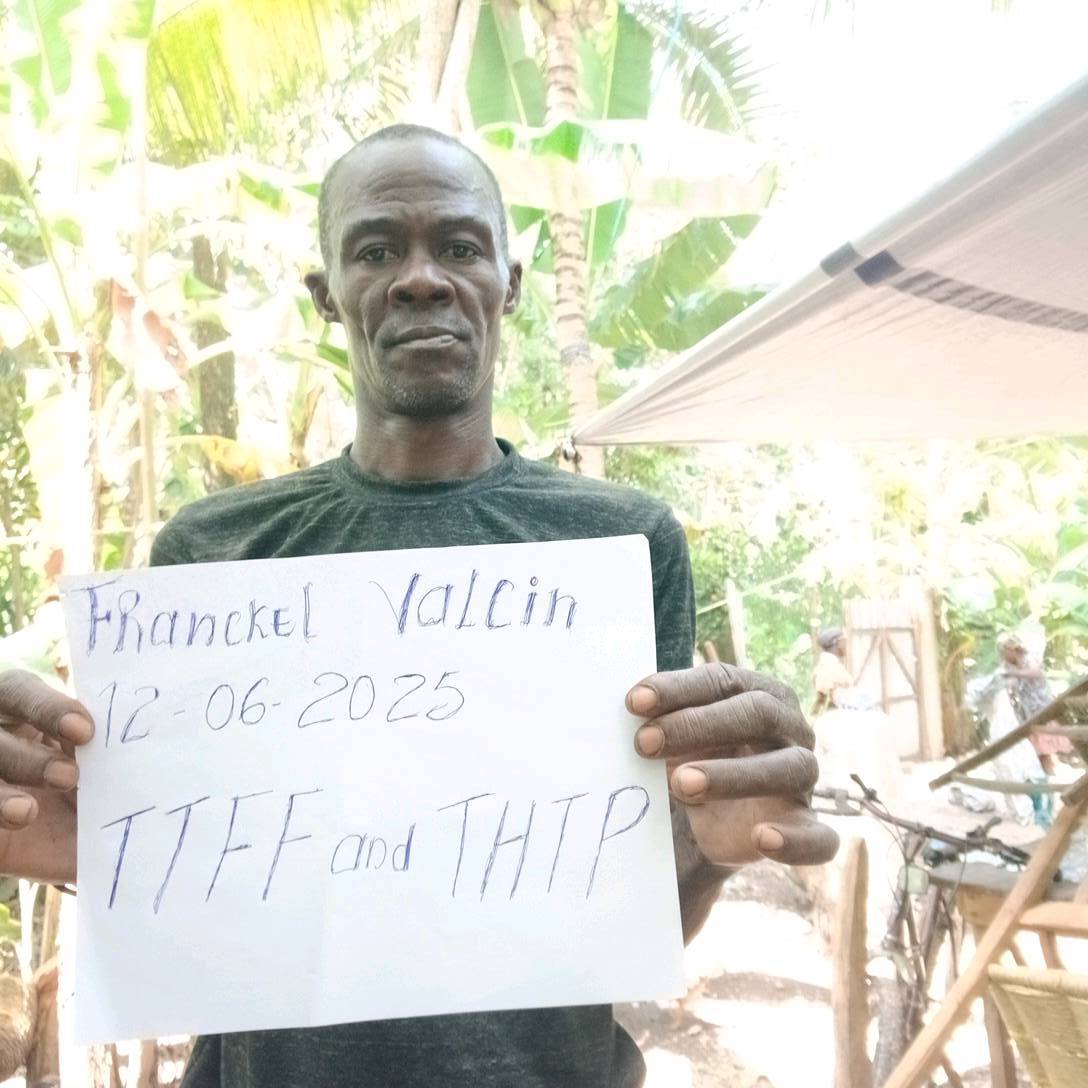 FRanckel Valcin
12-06-2025
TTFF and THTP